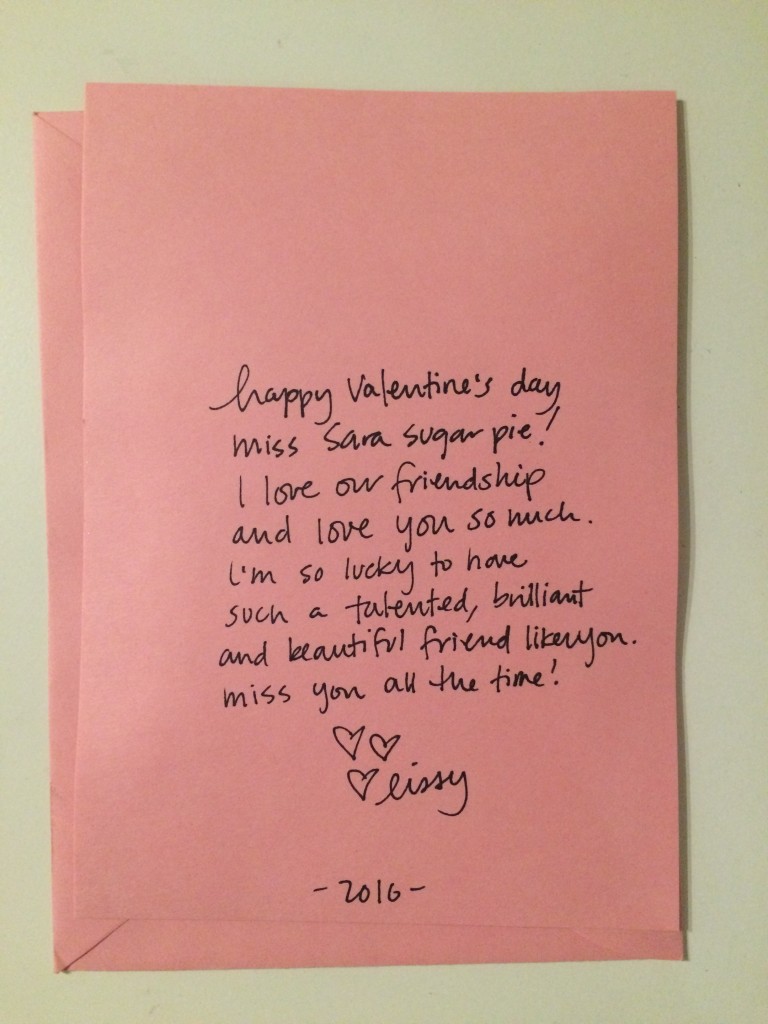 happy Valentine's day
miss Sara sugar pie!
I love our friendship
and love you so much.
I'm so lucky to have
such a talented, brilliant
and beautiful friend like you.
miss you all the time!
♡♡
♡ eissy
- 2016 -